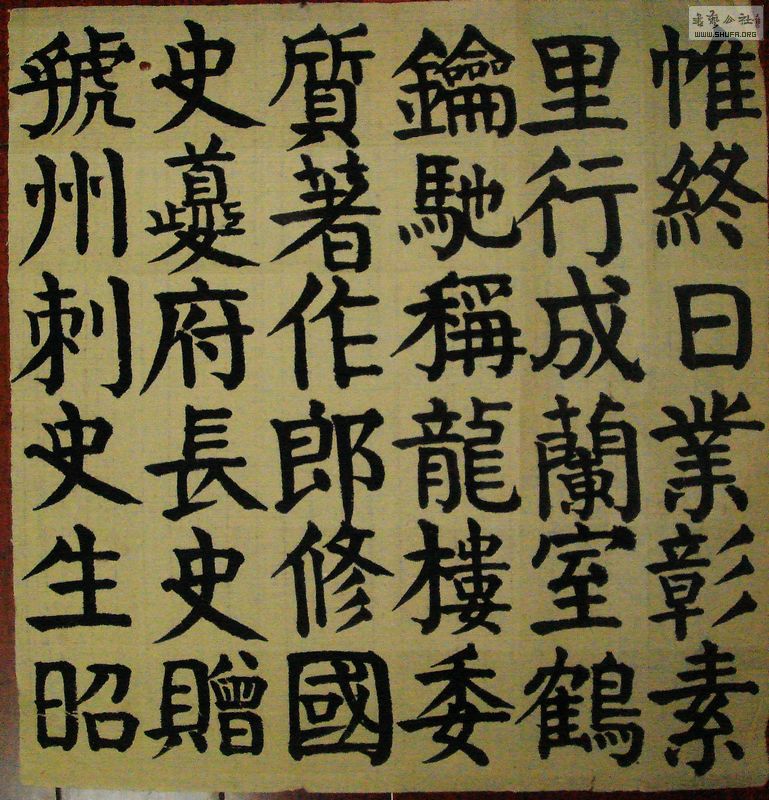 帷終日業彰素
里行成蘭室鶴
鑰馳稱龍樓委
質著作郎修國
史夔府長史贈
虢州刺史生昭
書藝公社
WWW.SHUFA.ORG